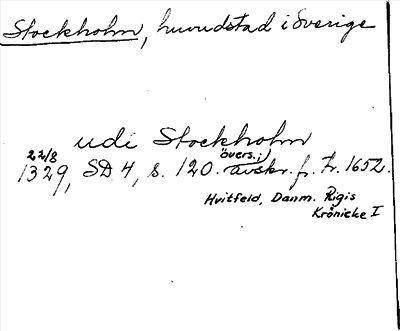 Stockholm, huvudstad i Sverige
udi Stockholm
22/8 övers. i
1329, SD 4, s. 120. avskr. fr. tr. 1652.
Hvitfeld, Danm. Rigis
Krönicke I